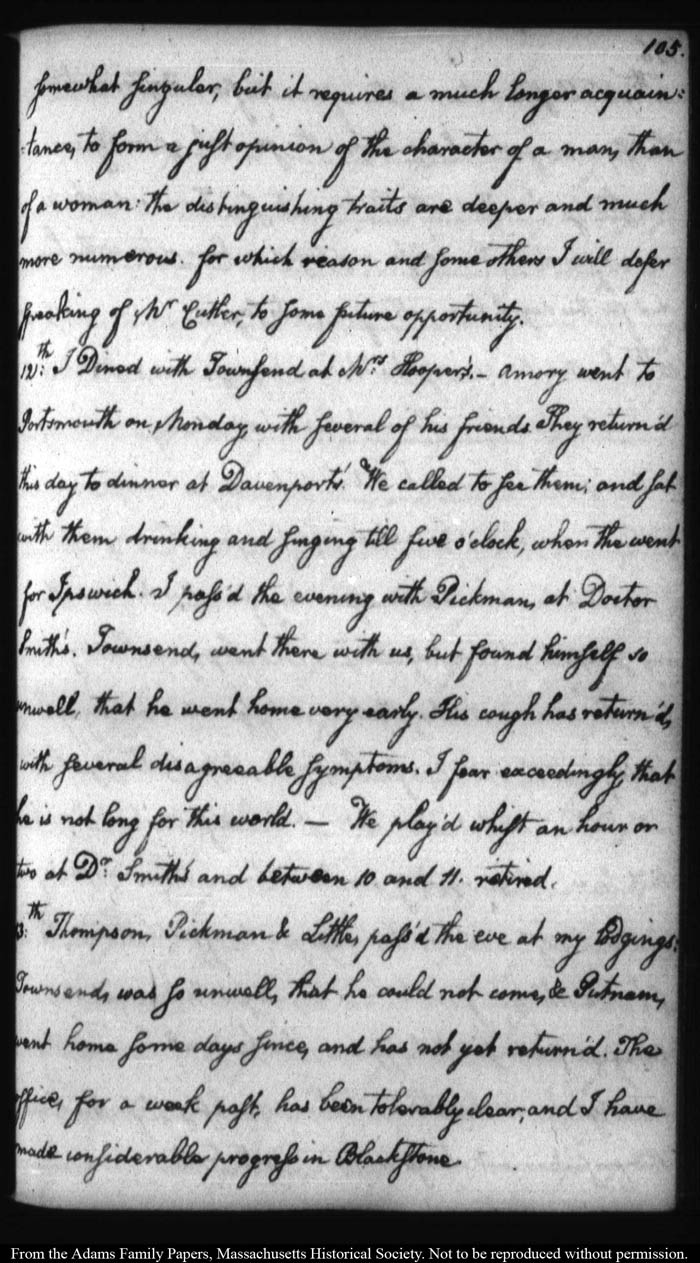 105.
somewhat singular, but it requires a much longer acquain:
:tance, to form a just opinion of the character of a man, than
of a woman: the distinguishing traits are deeper and much
more numerous. for which reason and some others I will defer
speaking of Mr Cutler, to some future opportunity.
12:th I Dined with Townsend at Mrs Hooper's. — Amory went to
Portsmouth on Monday, with several of his friends. They return'd
this day to dinner at Davenport's. We called to see them; and sat
with them drinking and singing till five o'clock, when the went
for Ipswich. I pass'd the evening with Pickman, at Doctor
Smith's. Townsend, went there with us, but found himself so
unwell, that he went home very early. His cough has return'd,
with several disagreeable symptoms. I fear exceedingly, that
he is not long for this world. — We play'd whist an hour or
two at Dr Smith's and between 10 and 11. retired.
13:th Thompson, Pickman & Little, pass'd the eve at my lodgings:
Townsend, was so unwell, that he could not come, & Putnam,
went home some days since, and has not yet return'd. The
office, for a week past, has been tolerably clear, and I have
made considerable progress in Blackstone.
From the Adams Family Papers, Massachusetts Historical Society. Not to be reproduced without permission.